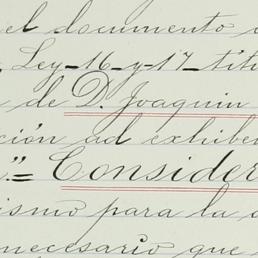 el documento
Ley-16-y-17-
de D. Joaquin
ción ad exhiben
."= Consider
ismo para la
necesario que